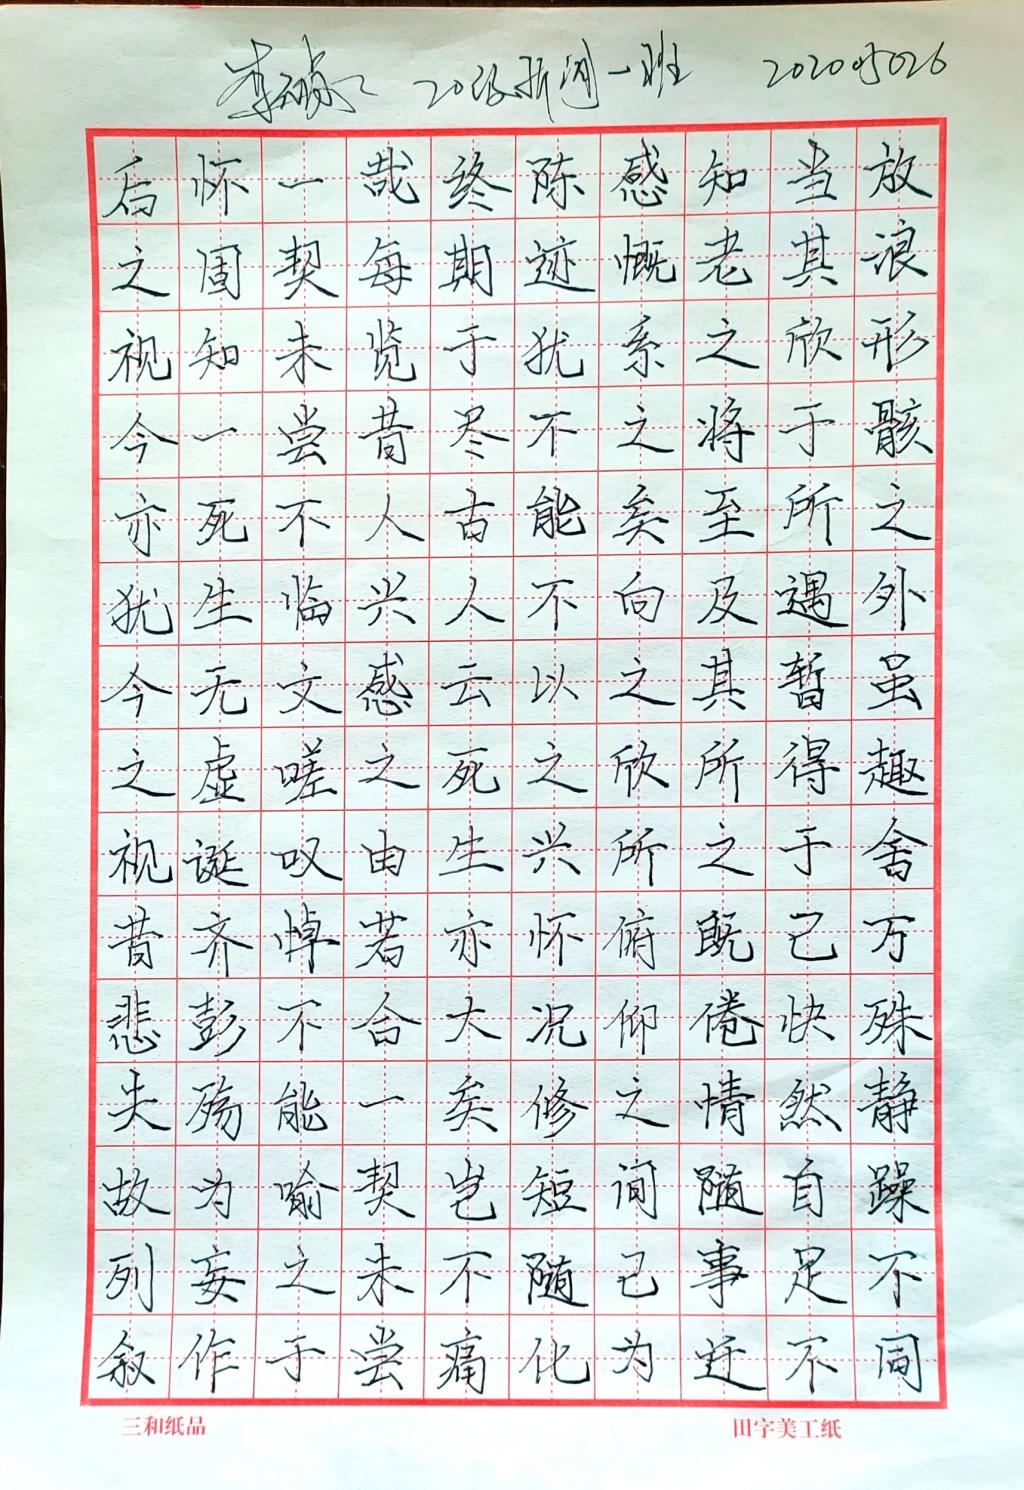 20级新闻一班
放浪形骸之外虽趣舍万殊静躁不同
当其欣于所遇暂得于己快然自足不
知老之将至及其所之既倦情随事迁
感慨系之矣向之欣所俯仰之间已为
陈迹犹不能不以之兴怀况修短随化
终期于尽古人云死生亦大矣岂不痛
哉每览昔人兴感之由若合一契未尝
一契未尝不临文嗟叹悼不能喻之于
怀固知一死生无虚诞齐彭殇为妄作
后之视今亦犹今之视昔悲夫故列叙
三和纸品
田字美工纸